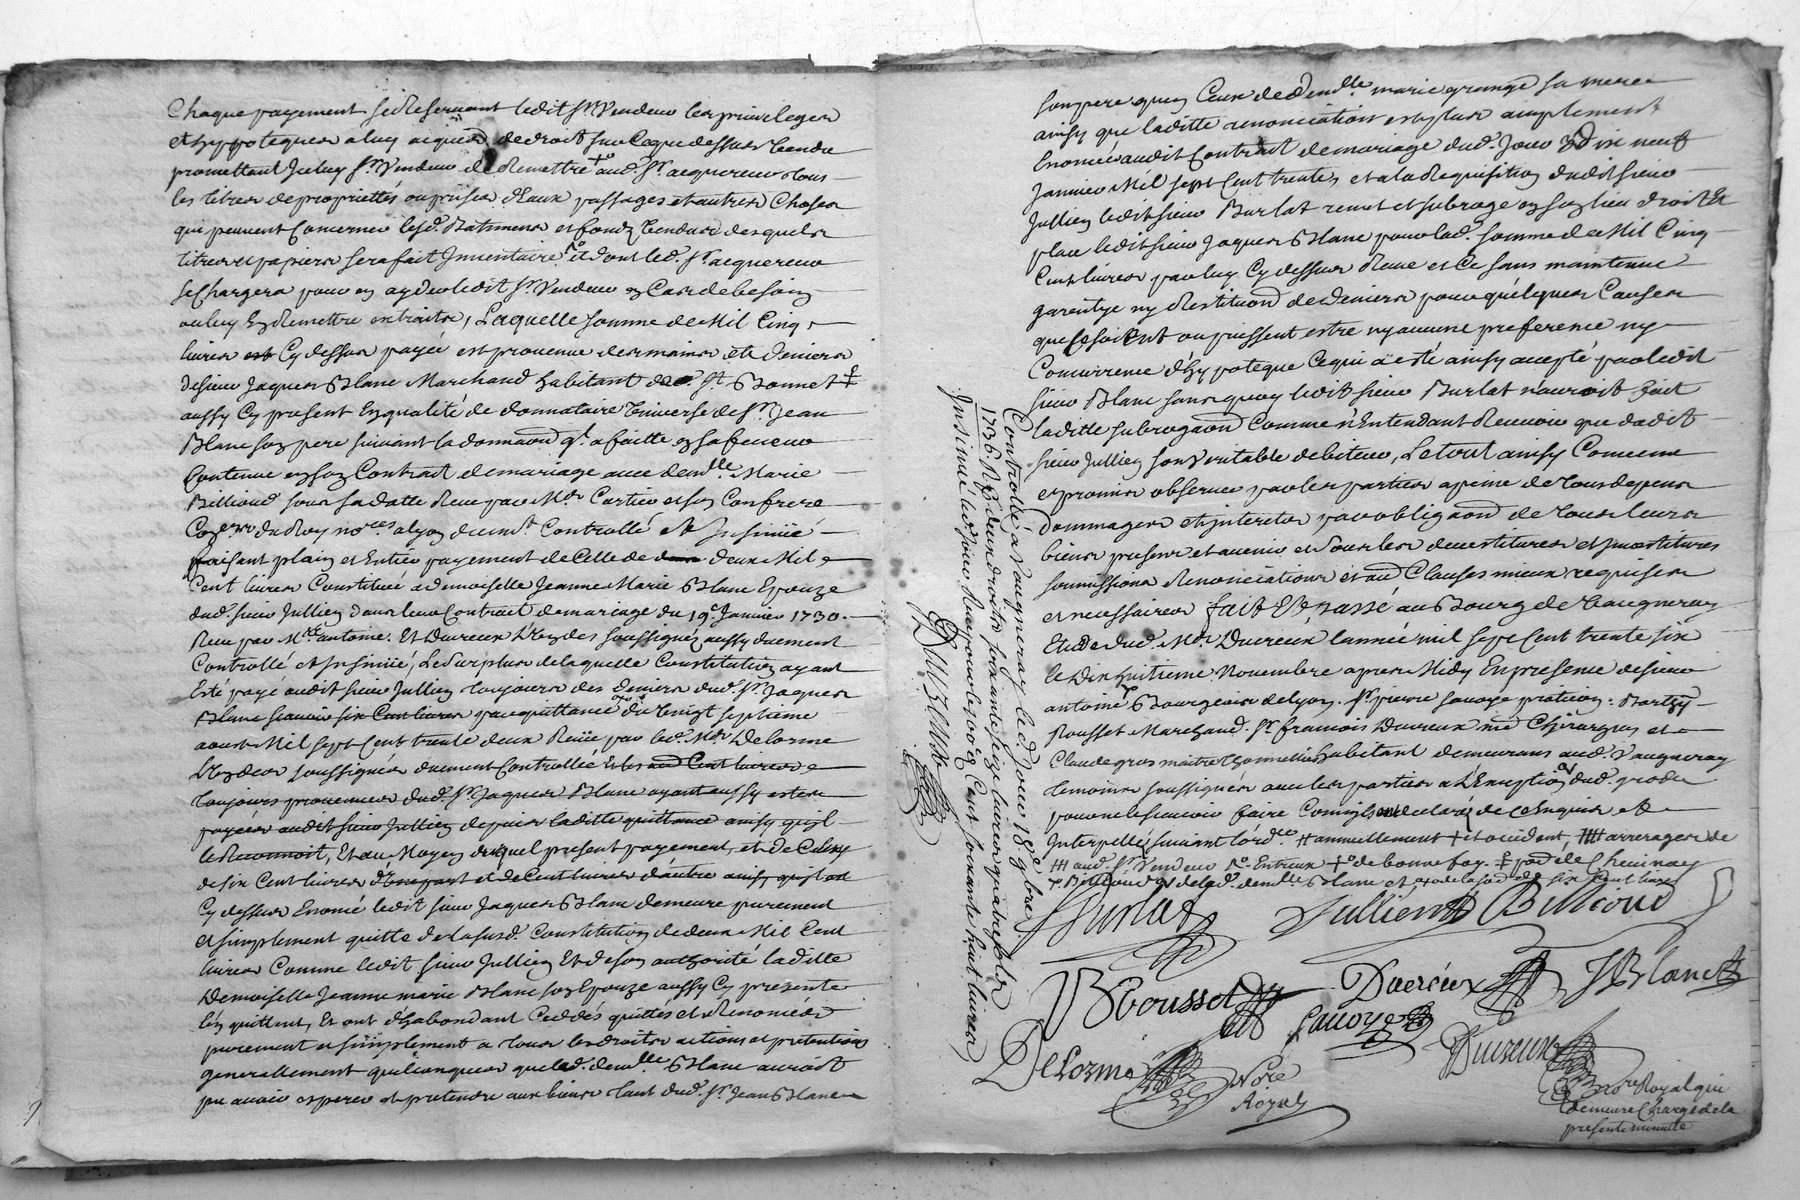 Chaque payement se Reservant ledit Sr Vendeur les privileges
et hypoteques a luy acquis de droit sur ce que dessus Vendu
promettant Icelluy Sr Vendeur de Remettre aud. Sr acquereur tous
les titres de proprietés ou prises d'Eaux passages et autres Choses
qui peuvent Concerner lesd. Batimens et fondz Vendus desquels
titres et papiers sera fait Inventaire et dont led. Sr acquereur
se Chargera pour en ayder ledit Sr Vendeur en Cas de besoin
ou luy En Remettre extraits, Laquelle somme de Mil Cinq
livres Cy dessus payée est provenue des mains et deniers
de sieur Jaques Blanc Marchand habitant de St Bonnet
aussy Cy present En qualité de donnataire Universel de Sr Jean
Blanc son pere suivant la donnaon ql a faitte en sa faveur
Contenue en son Contract de mariage avec demlle Marie
Billioud sous sa datte Reçu par Mes Cartier et son Confrere
Coners du Roy nores a lyon duemt Controllé et Insinüé
faisant plain et Entier payement de Celle de deux Mil
Cent livres Constituée a demoiselle Jeanne Marie Blanc Epouze
dud. sieur Jullien dans leur Contract de mariage du 19e Janvier 1730.
Reçu par Me antoine et Duvreux L'Un des soussignés aussy duement
Controllé et Insinüé, Le Surplus de laquelle Constitution ayant
Esté payé audit sieur Jullien toujours des deniers dud. Sr Jaques
Blanc scavoir six Cent livres par quittance du Vingt septieme
aoust Mil sept Cent trente deux Reçüe par led. Me Delorme
L'Un des soussignés duement Controllée et les Cent livres
toujours provenues dud. Sr Jaques Blanc ayant aussy esté
payées audit sieur Jullien depuis laditte quittance ainsy qu'il
le Reconnoit, Et au Moyen duquel present payement, et de Celuy
de six Cent livres d'Une part et de Cent livres d'autre ainsy qu'il est
Cy dessus Enoncé ledit sieur Jaques Blanc demeure purement
et simplement quitte de la susd. Constitution de deux Mil Cent
livres Comme ledit sieur Jullien Et de son authorité laditte
Demoiselle Jeanne marie Blanc son Epouze aussy Cy presente
l'en quittent, Et ont d'habondant Ceddés quittés et Renoncés
purement et simplement a tous les droits actions et pretentions
generallement quelconques que lad. demlle Blanc auroit
pu avoir esperer et pretendre aux biens tant dud. Sr Jean Blanc
son pere que Ceux de Demlle marie grange sa mere
ainsy que laditte renonciation est plus amplement
Enoncée audit Contract de mariage dud. Jour Dix neuf
Janvier Mil sept Cent trente, et a la Requisition dudit sieur
Jullien ledit sieur Burlat remet et subroge en son lieu droit et
place ledit sieur Jaques Blanc pour lad. somme de Mil Cinq
Cent livres par luy Cy dessus Reçue et Ce sans maintenue
garentye ny Restitution de deniers pour quelques Causes
que Ce soit ou puissent estre ny aucune preference ny
Concurrence d'hypoteque Ce qui a esté ainsy accepté par ledit
sieur Blanc sans quoy ledit sieur Burlat n'auroit fait
laditte subrogaon Comme n'Entendant Recevoir que dudit
sieur Jullien son veritable debiteur, Le tout ainsy Convenu
et promis observer par les parties a peine de tous depens
dommages et interets, par obligaon de tous leurs
biens presens et avenir et sous les devestitures et investitures
soumissions Renonciations et au Clauses mieux requises
et necessaires fait et passé au Bourg de Vaugneray
Etude dud. Me Duvreux l'année mil sept Cent trente six
le Dix huitieme Novembre apres Midy En presence de sieur
antoine Bourgeois de Lyon. Sr pierre savoye praticien. Barthy
Rousset Marchand. Sr francois Duvreux me Chirurgien et
Claude gros maitre thonnellier habitant demeurans aud. Vaugneray
temoins soussignés avec les parties a L'Exception dud. gros
pour ne le scavoir faire Comme il a declaré de ce Enquis et
Interpellé suivant l'ordce # annuellement + et occident, ### arrerages de
### aud. Sr Vendeur Entreux + de bonne foy. Chevinay
Billioud de lad. demlle Blanc et de la sd. de six Cent livres
Burlat Jullien Billioud
B Rousset Duvreux J Blanc
Savoye
Delorme Nore Royal
Duvreux
Nore Royal qui
demeure Chargé de la
presente minutte
Controllé a Vaugneray led. Jour 18e 9bre
1736. Reçu deux droits soixante seize livres quatre sols
Insinué led. jour Reçu pour le 100e Cent soixante huit livres
Duvreux